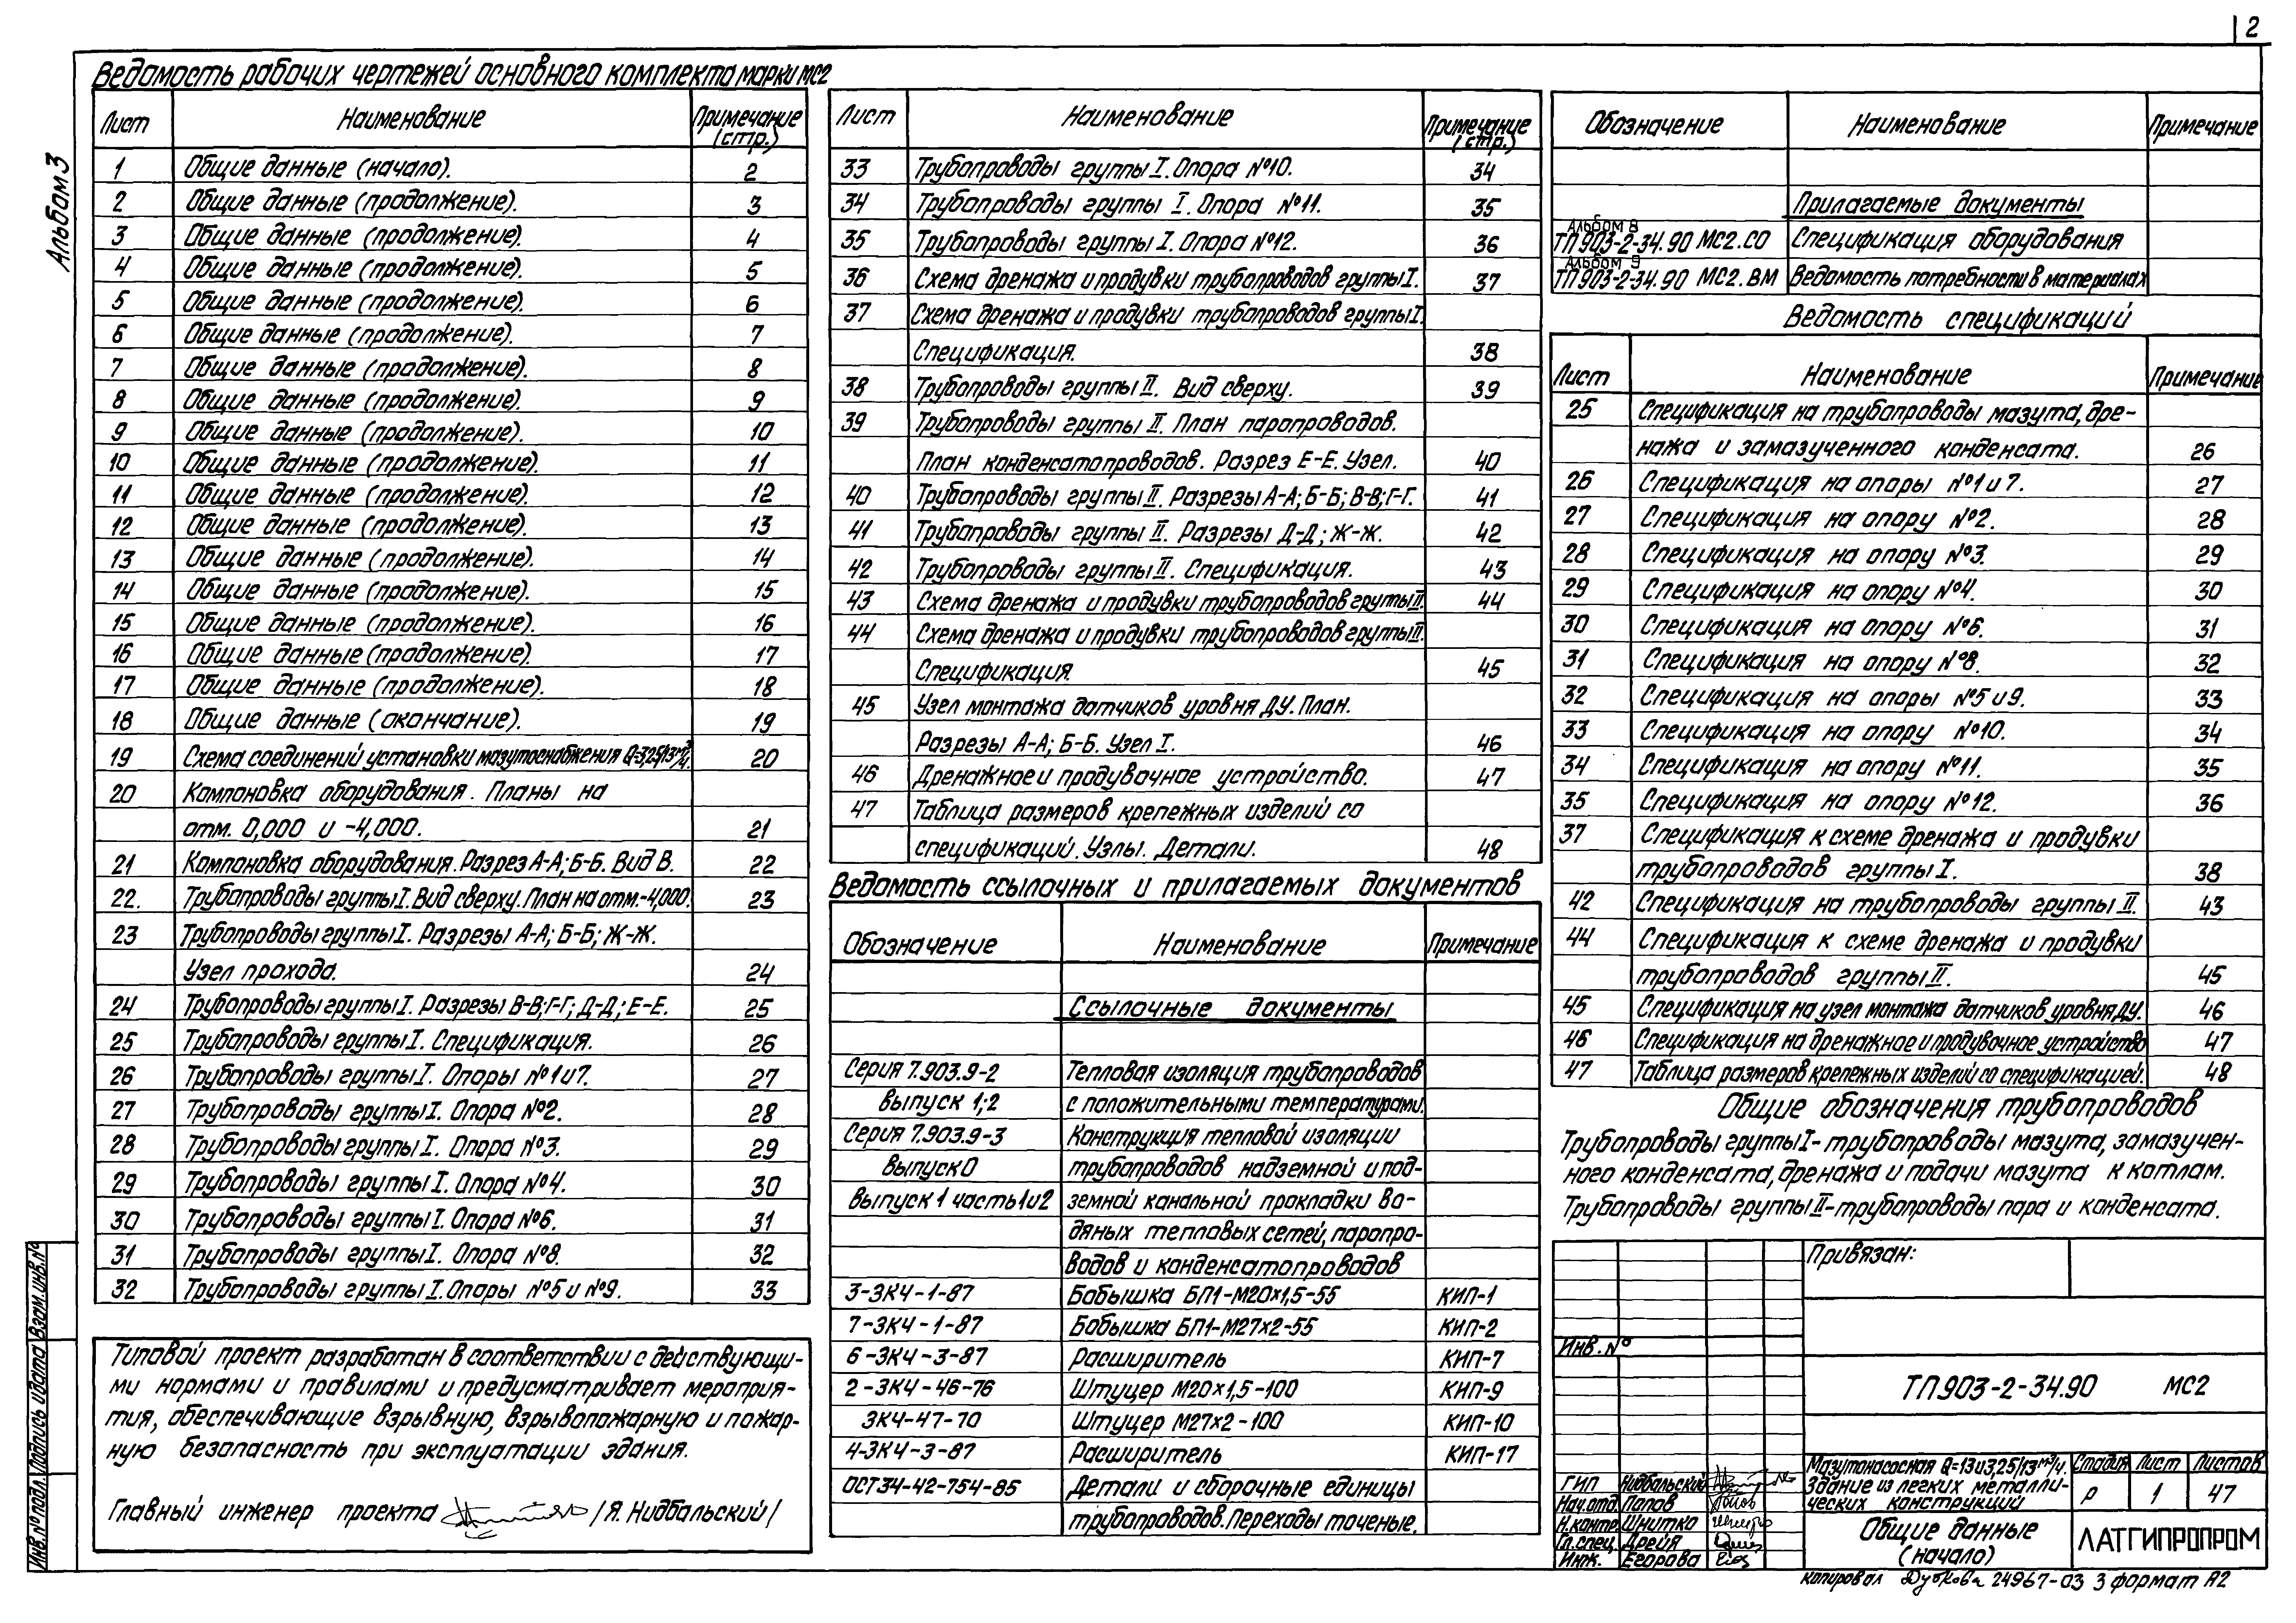 2
Альбом 3
Ведомость рабочих чертежей основного комплекта марки МС2
Лист Наименование Примечание (стр.)
1 Общие данные (начало). 2
2 Общие данные (продолжение). 3
3 Общие данные (продолжение). 4
4 Общие данные (продолжение). 5
5 Общие данные (продолжение). 6
6 Общие данные (продолжение). 7
7 Общие данные (продолжение). 8
8 Общие данные (продолжение). 9
9 Общие данные (продолжение). 10
10 Общие данные (продолжение). 11
11 Общие данные (продолжение). 12
12 Общие данные (продолжение). 13
13 Общие данные (продолжение). 14
14 Общие данные (продолжение). 15
15 Общие данные (продолжение). 16
16 Общие данные (продолжение). 17
17 Общие данные (продолжение). 18
18 Общие данные (окончание). 19
19 Схема соединений установки мазутоснабжения Q=3,25/13м³/ч. 20
20 Компоновка оборудования. Планы на
отм. 0,000 и -4,000. 21
21 Компоновка оборудования. Разрез А-А; Б-Б. Вид В. 22
22. Трубопроводы группы I. Вид сверху. План на отм.-4,000. 23
23 Трубопроводы группы I. Разрезы А-А; Б-Б; Ж-Ж.
Узел прохода. 24
24 Трубопроводы группы I. Разрезы В-В; Г-Г; Д-Д; Е-Е. 25
25 Трубопроводы группы I. Спецификация. 26
26 Трубопроводы группы I. Опоры №1 и 7. 27
27 Трубопроводы группы I. Опора №2. 28
28 Трубопроводы группы I. Опора №3. 29
29 Трубопроводы группы I. Опора №4. 30
30 Трубопроводы группы I. Опора №6. 31
31 Трубопроводы группы I. Опора №8. 32
32 Трубопроводы группы I. Опоры №5 и №9. 33
Типовой проект разработан в соответствии с действующи-
ми нормами и правилами и предусматривает мероприя-
тия, обеспечивающие взрывную, взрывопожарную и пожар-
ную безопасность при эксплуатации здания.
Главный инженер проекта /Я. Нидбальский/
Лист Наименование Примечание (стр.)
33 Трубопроводы группы I. Опора №10. 34
34 Трубопроводы группы I. Опора №11. 35
35 Трубопроводы группы I. Опора №12. 36
36 Схема дренажа и продувки трубопроводов группы I. 37
37 Схема дренажа и продувки трубопроводов группы I.
Спецификация. 38
38 Трубопроводы группы II. Вид сверху. 39
39 Трубопроводы группы II. План паропроводов.
План конденсатопроводов. Разрез Е-Е. Узел. 40
40 Трубопроводы группы II. Разрезы А-А; Б-Б; В-В; Г-Г. 41
41 Трубопроводы группы II. Разрезы Д-Д; Ж-Ж. 42
42 Трубопроводы группы II. Спецификация. 43
43 Схема дренажа и продувки трубопроводов группы II. 44
44 Схема дренажа и продувки трубопроводов группы II.
Спецификация. 45
45 Узел монтажа датчиков уровня ДУ. План.
Разрезы А-А; Б-Б. Узел I. 46
46 Дренажное и продувочное устройство. 47
47 Таблица размеров крепежных изделий со
спецификаций. Узлы. Детали. 48
Ведомость ссылочных и прилагаемых документов
Обозначение Наименование Примечание
Ссылочные документы
Серия 7.903.9-2 Тепловая изоляция трубопроводов
выпуск 1;2 с положительными температурами.
Серия 7.903.9-3 Конструкция тепловой изоляции
выпуск 0 трубопроводов надземной и под-
выпуск 1 часть 1 и 2 земной канальной прокладки во-
дяных тепловых сетей, паропро-
водов и конденсатопроводов
3-ЗК4-1-87 Бобышка БП1-М20×1,5-55 КИП-1
7-ЗК4-1-87 Бобышка БП1-М27×2-55 КИП-2
6-ЗК4-3-87 Расширитель КИП-7
2-ЗК4-46-76 Штуцер М20×1,5-100 КИП-9
ЗК4-47-70 Штуцер М27×2-100 КИП-10
4-ЗК4-3-87 Расширитель КИП-17
ОСТ 34-42-754-85 Детали и сборочные единицы
трубопроводов. Переходы точеные.
Обозначение Наименование Примечание
Прилагаемые документы
Альбом 8
ТП 903-2-34.90 МС2.СО Спецификация оборудования
Альбом 9
ТП 903-2-34.90 МС2.ВМ Ведомость потребности в материалах
Ведомость спецификаций
Лист Наименование Примечание
25 Спецификация на трубопроводы мазута, дре-
нажа и замазученного конденсата. 26
26 Спецификация на опоры №1 и 7. 27
27 Спецификация на опору №2. 28
28 Спецификация на опору №3. 29
29 Спецификация на опору №4. 30
30 Спецификация на опору №6. 31
31 Спецификация на опору №8. 32
32 Спецификация на опоры №5 и 9. 33
33 Спецификация на опору №10. 34
34 Спецификация на опору №11. 35
35 Спецификация на опору №12. 36
37 Спецификация к схеме дренажа и продувки
трубопроводов группы I. 38
42 Спецификация на трубопроводы группы II. 43
44 Спецификация к схеме дренажа и продувки
трубопроводов группы II. 45
45 Спецификация на узел монтажа датчиков уровня ДУ. 46
46 Спецификация на дренажное и продувочное устройство 47
47 Таблица размеров крепежных изделий со спецификацией. 48
Общие обозначения трубопроводов
Трубопроводы группы I - трубопроводы мазута, замазучен-
ного конденсата, дренажа и подачи мазута к котлам.
Трубопроводы группы II - трубопроводы пара и конденсата.
Привязан:
Инв. №
ТП 903-2-34.90 МС2
Мазутонасосная Q=13 и 3,25/13 м³/ч.
Здание из легких металли-
ческих конструкций
Стадия Лист Листов
Р 1 47
Общие данные
(начало)
ЛАТГИПРОПРОМ
ГИП Нидбальский
Нач.отд. Попов
Н.контр. Шнитко
Гл.спец. Дрейя
Инж. Егорова
Копировал Дубкова 24967-03 3 формат А2
Инв. № подл. Подпись и дата Взам. инв. №